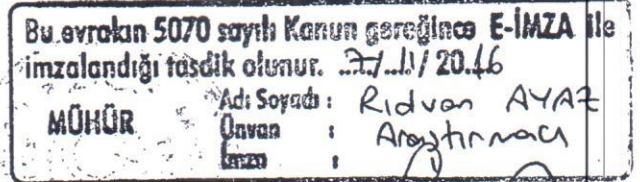 Bu evrakın 5070 sayılı Kanun gereğince E-İMZA ile
imzalandığı tasdik olunur. 7/11/2016
MÜHÜR
Adı Soyadı : Rıdvan AYAZ
Ünvan : Araştırmacı
İmza :